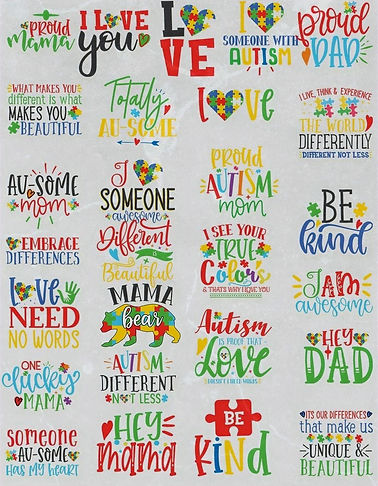 proud
mama
I LOVE
you
LOVE
I LOVE
SOMEONE WITH
AUTISM
proud
DAD
WHAT MAKES YOU
different is what
MAKES YOU
BEAUTIFUL
Totally
AU-SOME
love
I LIVE, THINK & EXPERIENCE
THE WORLD
DIFFERENTLY
DIFFERENT NOT LESS
AU-SOME
mom
I
SOMEONE
awesome
PROUD
AUTISM
mom
BE
kind
EMBRACE
DIFFERENCES
Different
is
Beautiful
I SEE YOUR
TRUE
Colors
& THAT'S WHY I LOVE YOU
I AM
awesome
Love
NEED
NO WORDS
MAMA
bear
Autism
IS PROOF THAT
Love
DOESN'T NEED WORDS
HEY
DAD
ONE
lucky
MAMA
AUTISM
DIFFERENT
NOT LESS
someone
AU-SOME
HAS MY HEART
HEY
mama
BE
KIND
ITS OUR DIFFERENCES
that make us
UNIQUE &
BEAUTIFUL